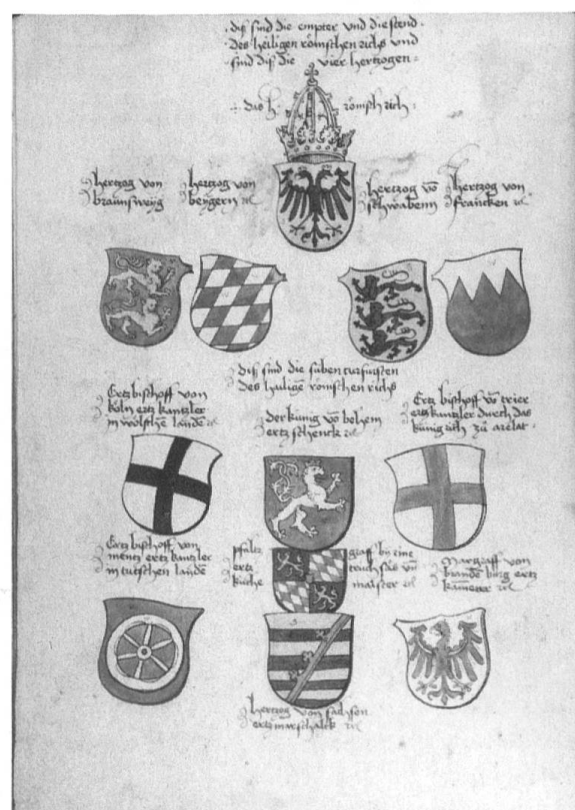 diß sind die empter und die stend
des heiligen römschen richs und
sind diß die vier hertzogen
das h. römsch rich
hertzog von
braunsweyg
hertzog von
beygern ꝛc
hertzog vo
schwabenn
hertzog von
francken ꝛc
diß sind die süben curfürsten
des heilige römschen richs
Ertzbischoff von
köln ertz kantzler
in wölsche lande ꝛc
der künig vo behem
ertz schenck ꝛc
Ertz bischoff vo trier
ertz kantzler durch das
künig rich zu arelat
Ertz bischoff von
mentz ertz kantzler
in tutschen lande
pfaltz graff by rine
ertz truchsäs un
kuche maister ꝛc
Margraff von
brande burg ertz
kamerer ꝛc
hertzog von sachsen
ertz marschalck ꝛc